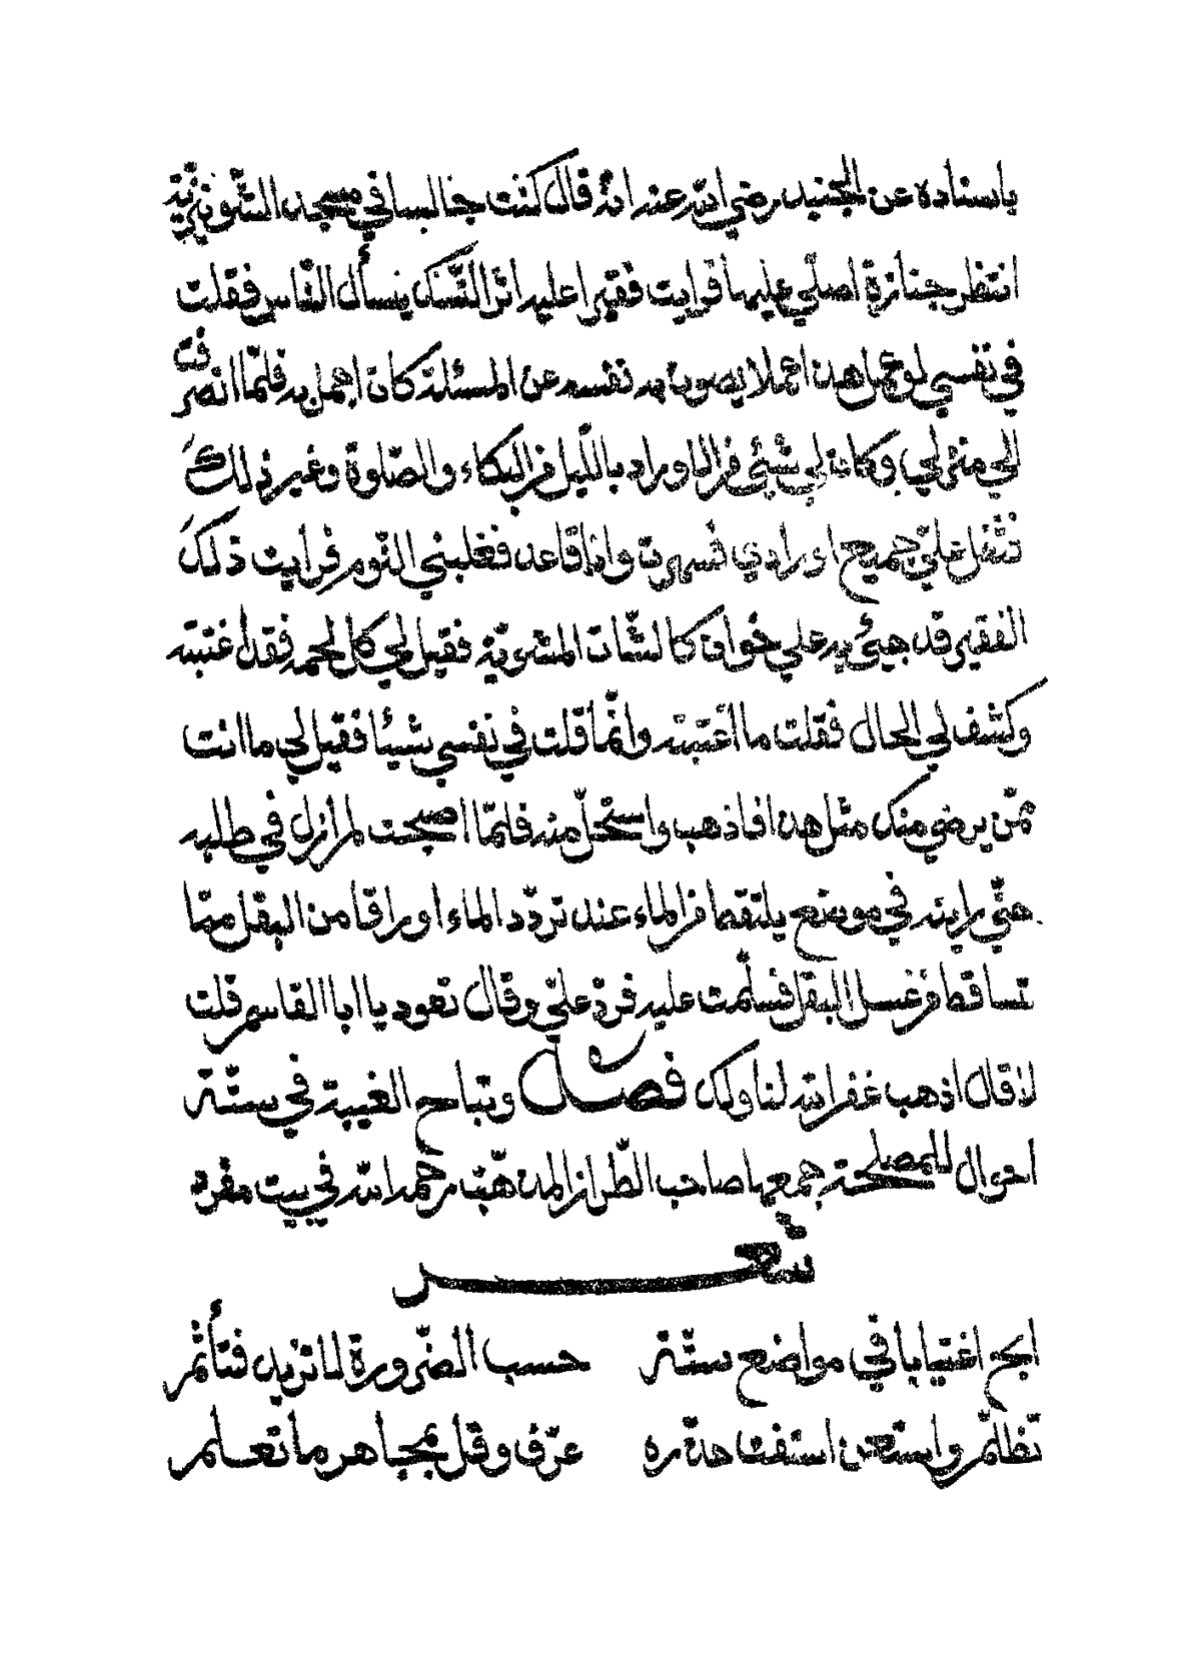 باسناده عن الجنيد رضي الله عنه انه قال كنت جالسا في مسجد الشونيزية
انتظر جنازة اصلي عليها فرايت فقيرا عليه اثر النسك يسأل الناس فقلت
في نفسي لو عمل هذا عملا يصون به نفسه عن المسئلة كان اجمل به فلمّا انصرفت
الي منزلي وكان لي شيئ من الاوراد بالليل من البكاء والصلوة وغير ذلك
فثقل عليّ جميع اورادي فسهرت وانا قاعد فغلبني النّوم فرأيت ذلك
الفقير قد جيئ به علي خوان كالشّاة المشويّة فقيل لي كل لحمه فقد اغتبته
وكشف لي الحال فقلت ما اغتبته وانّما قلت في نفسي شيئا فقيل لي ما انت
ممّن يرضي منك مثل هذا فاذهب واستحلّ منه فلمّا اصبحت لم ازل في طلبه
حتّي رايته في موضع يلتقط من الماء عند تردّد الماء اوراقا من البقل ممّا
تساقط من غسل البقل فسلّمت عليه فردّ عليّ وقال تعود يا ابا القاسم قلت
لا قال اذهب غفر الله لنا ولك فصل وتباح الغيبة في ستّة
احوال للمصلحة جمعها صاحب الطّراز المذهّب رحمه الله في بيت مفرد
شعر
ابح اغتيابا في مواضع ستّة حسب الضّرورة لا تزيد فتأثم
تظلّم واستعن استفت حذّره عرّف وقل بمجاهر ما تعلم